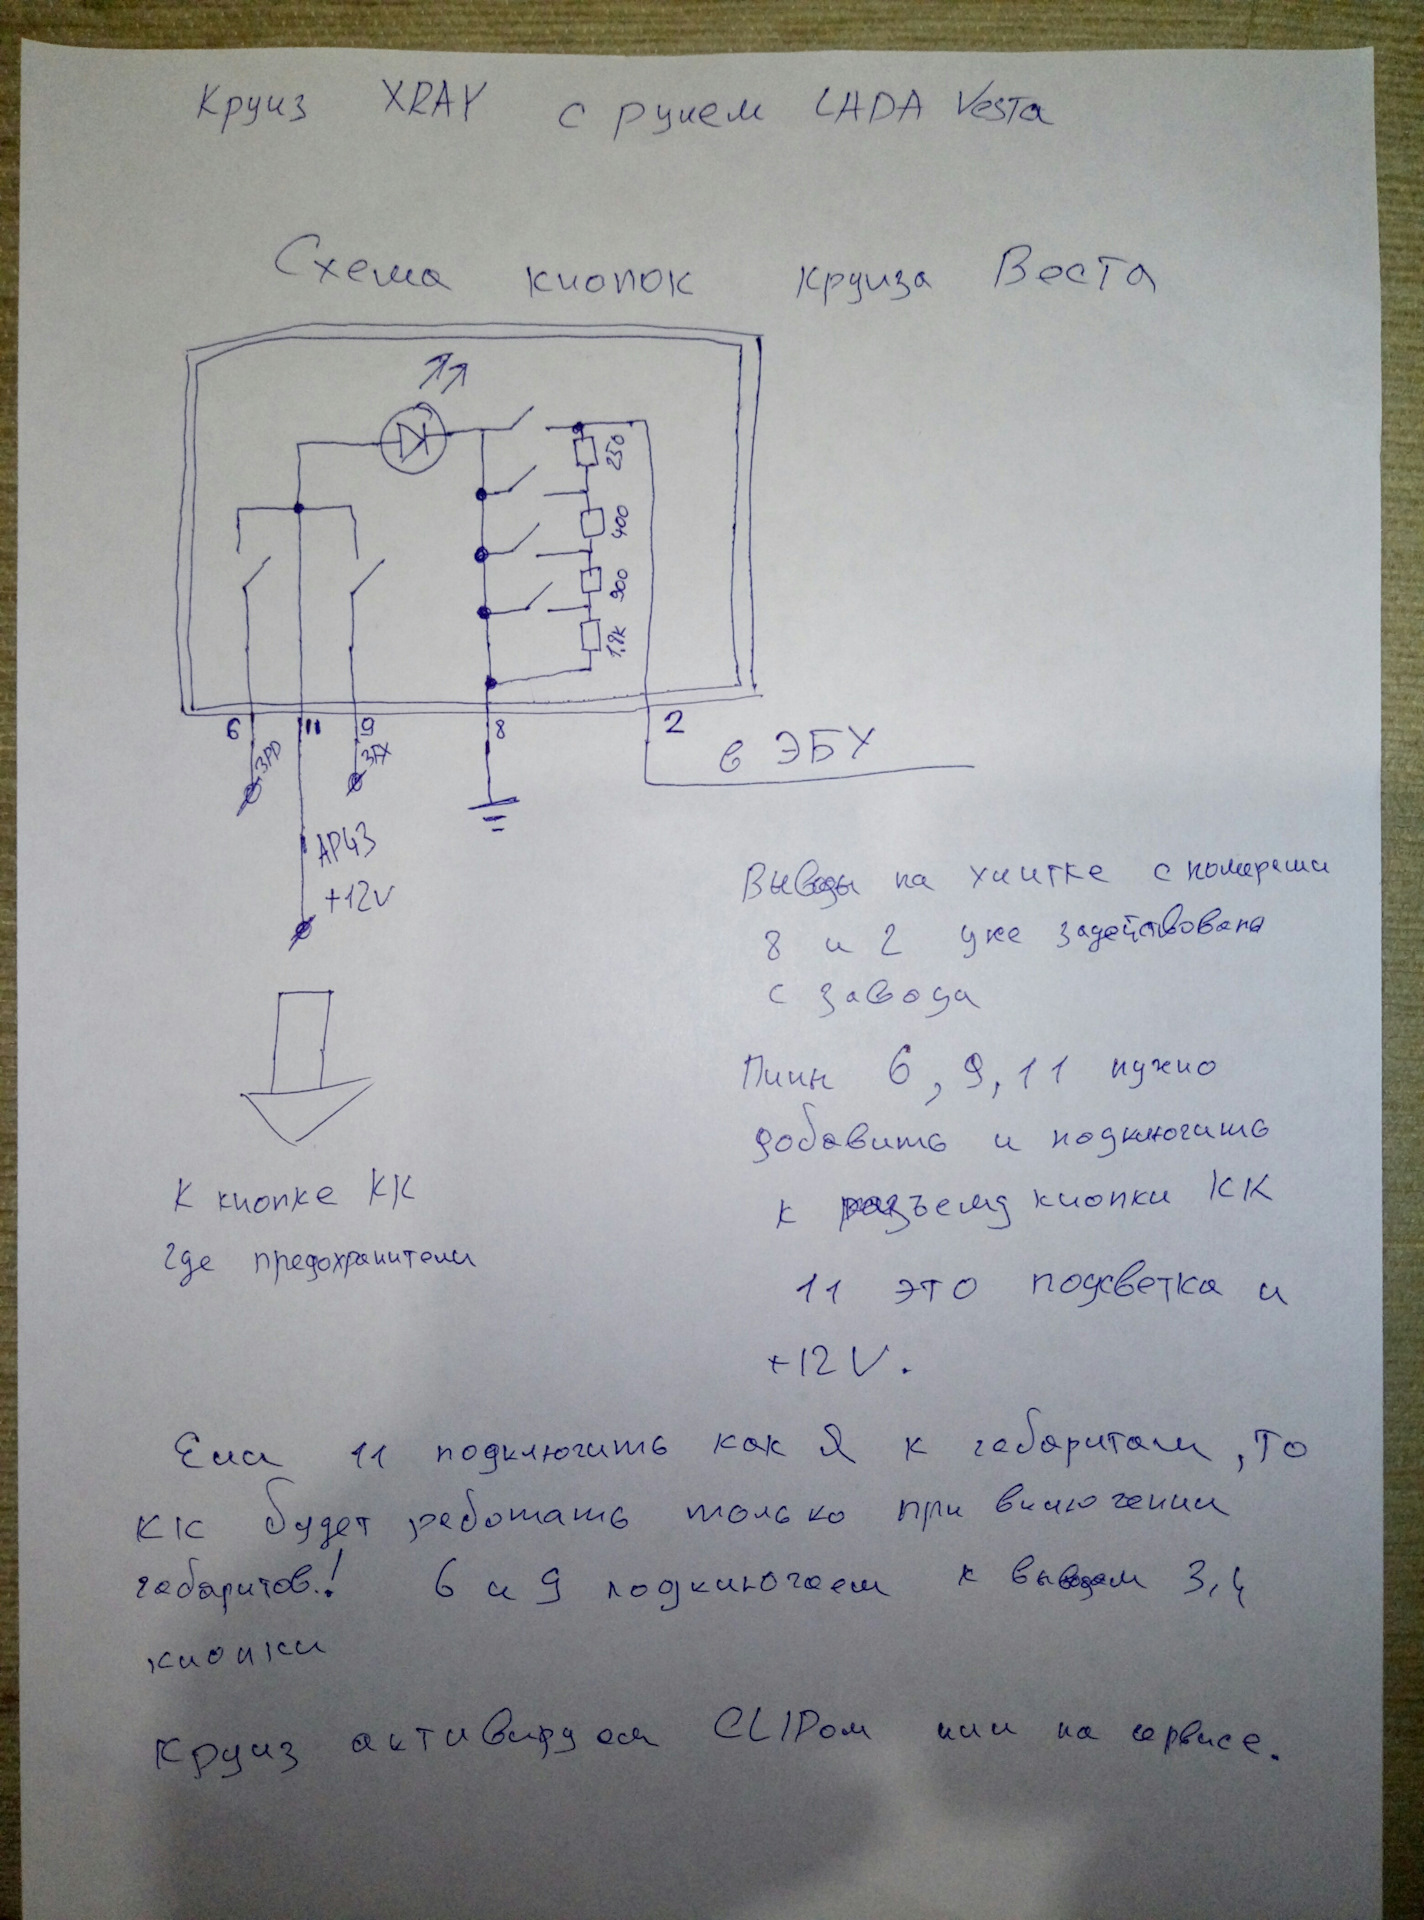 Круиз XRAY с рулем LADA Vesta
Схема кнопок круиза Веста
250
400
900
1.8к
6 11 9 8 2
3PD 3FX
в ЭБУ
AP43
+12V
Выводы на улитке с номерами
8 и 2 уже задействована
с завода
Пины 6, 9, 11 нужно
добавить и подключить
к разъему кнопки КК
11 это подсветка и
+12V.
К кнопке КК
где предохранители
Если 11 подключить как Я к габаритам, то
КК будет работать только при включении
габаритов! 6 и 9 подключаем к выводам 3,4
кнопки
Круиз активируем CLIPом или на сервисе.